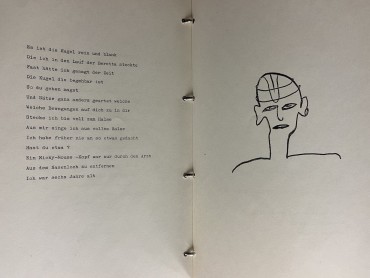 Es ist die Kugel rein und blank
Die ich in den Lauf der Beretta steckte
Fast hätte ich gesagt der Zeit
Die Kugel die Legende ist
So mu gehen magst
Und Hüte ganz anders geartet
Welche Bewegungen auf dich zu in dir
Stecke ich bis voll zum Halse
Aus mir singe ich aus vollem Halse
Ich habe früher nie an so etwas gedacht
Hast du etwa ?
Ein Micky-Mouse -Kopf auf nur durch den
Aus dem Hasenloch zu entfernen
Ich war sechs Jahre alt